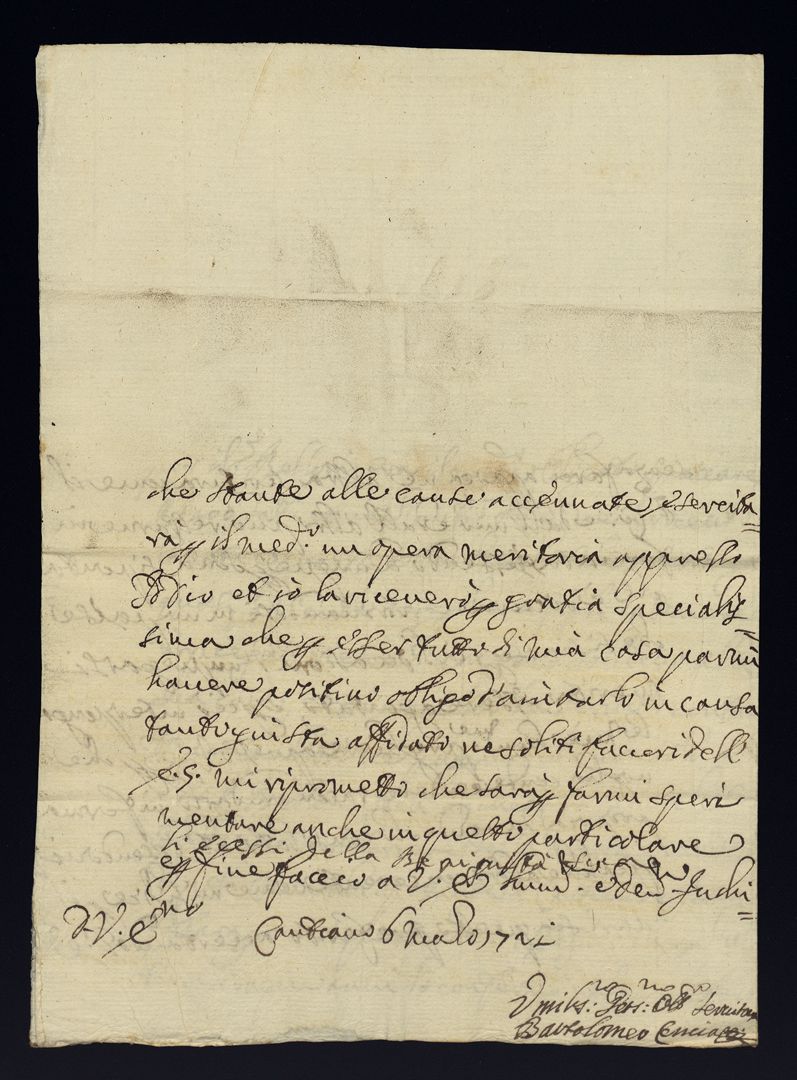 che stante alle cause accennate esercita=
rà p il med.o un opera meritoria appresso
Iddio et io la riceverò p gratia specialis=
sima che p esser tutto di mia casa parmi
havere positivo obligo d'aiutarlo in causa
tanto giusta affidato ne soliti favori dell
E.S. mi riprometto che sarà p farmi speri
mentare anche in questo particolare
li eccessi della Benignità
e p fine faccio a V. E. hum.a e dev.a Inchi=
D. V. E. Cantiano 6 Marzo 1721
Vmilis.mo Dev.mo Obb.mo Servitore
Bartolomeo